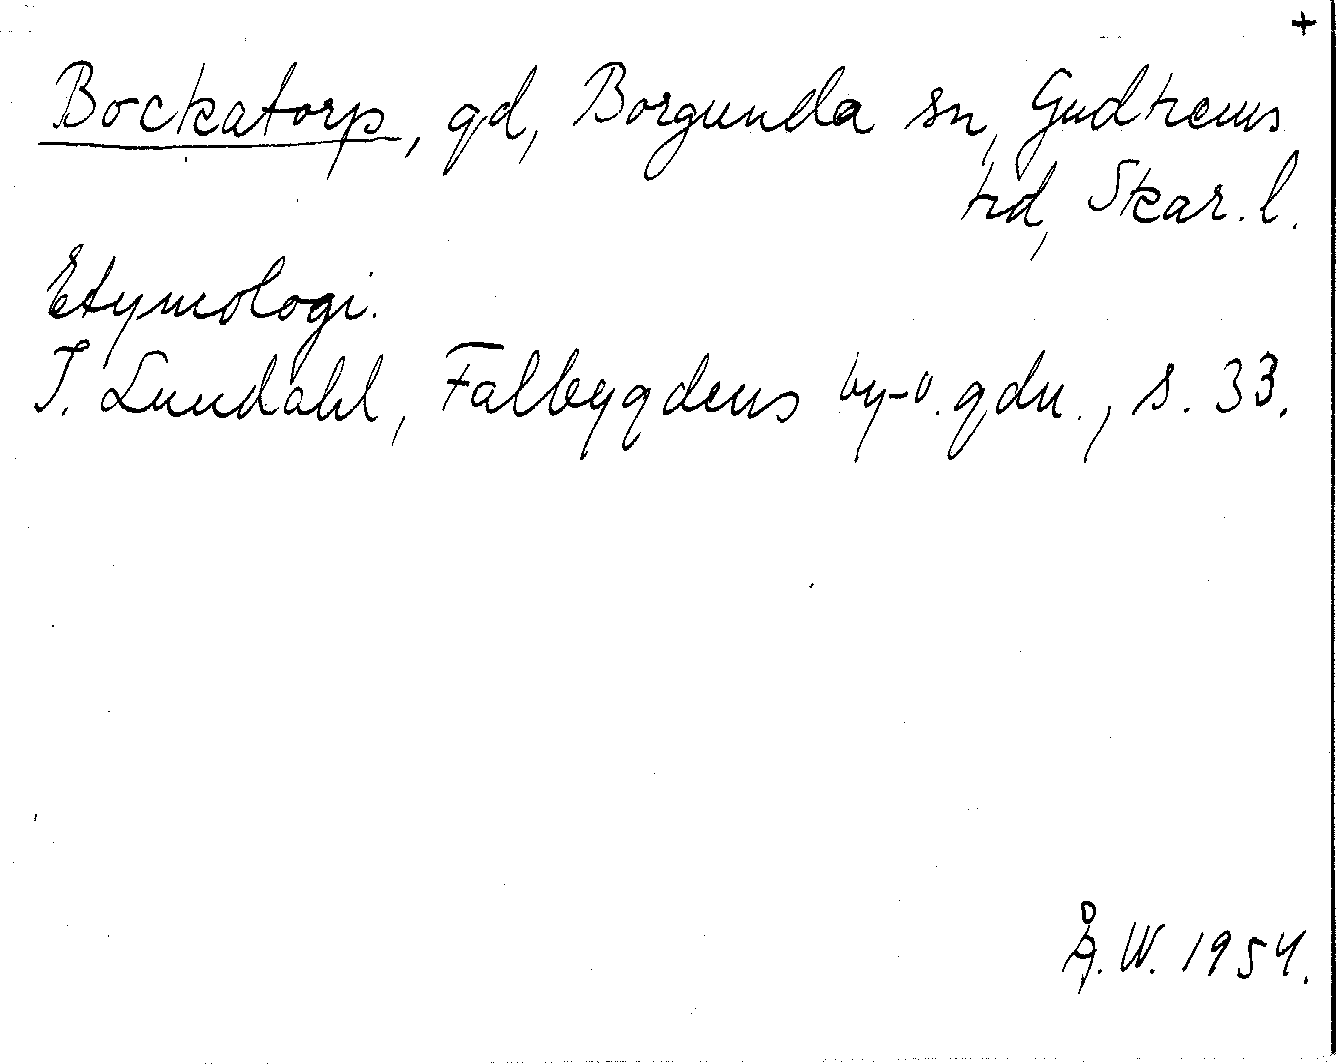 +
Bockatorp, gd, Borgunda sn, Gudhems
hd, Skar. l.
Etymologi.
I. Lundahl, Falbygdens by-o. gdn., s. 33.
Å. W. 1954.